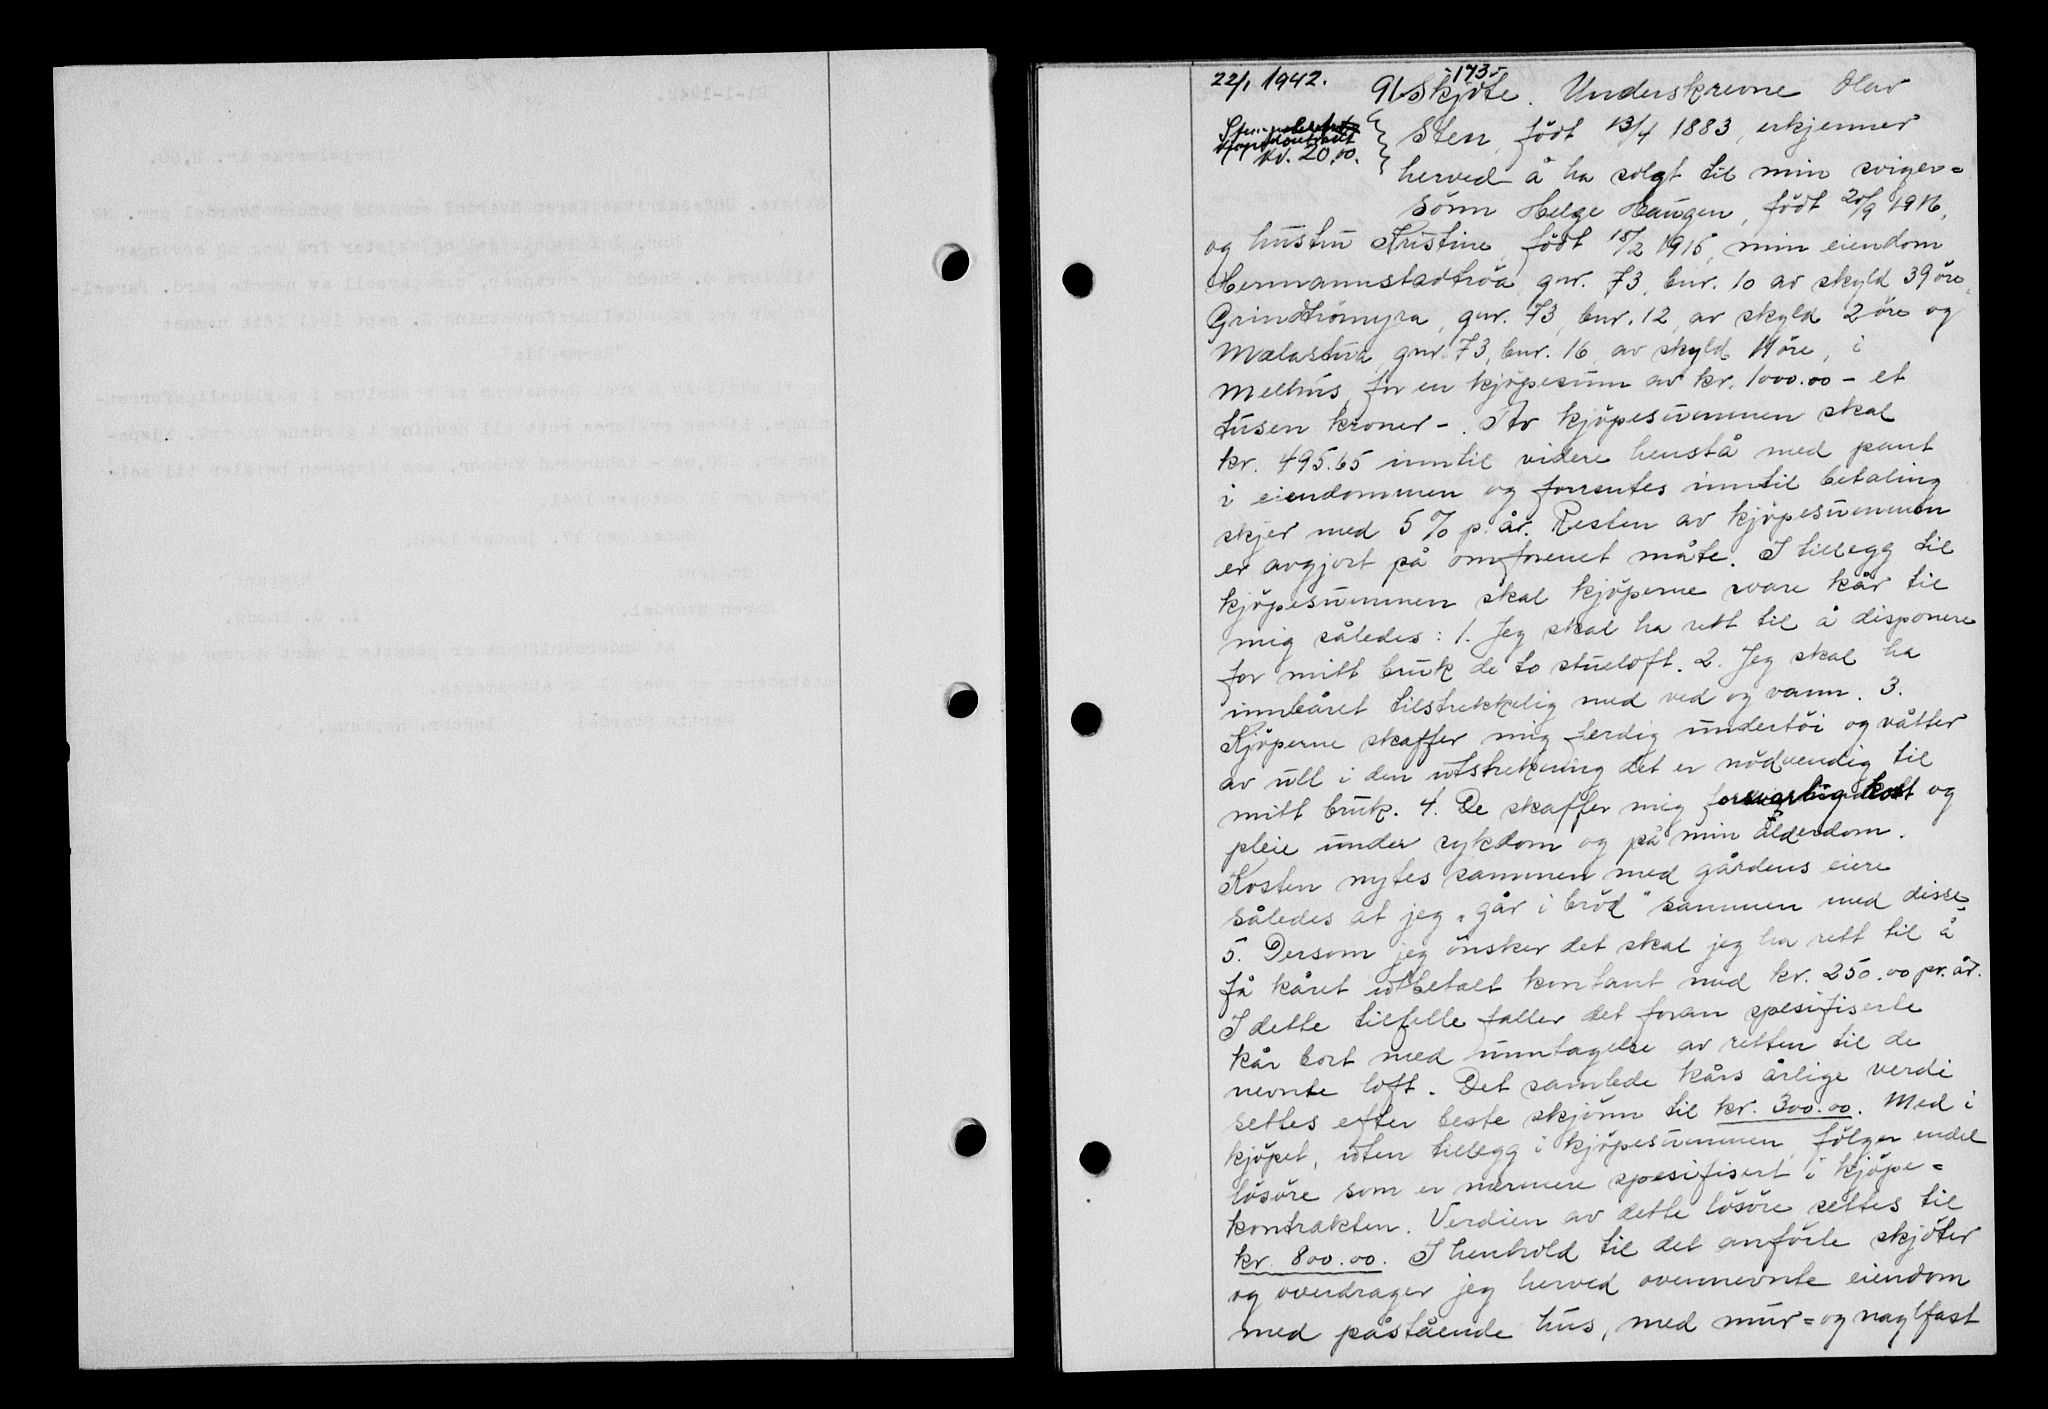 22/1 1942.
-173-
91/Skjöte. Underskrevne Olav
Kr. 20.00.
Sten, födt 13/4 1883, erkjenner
herved å ha solgt til min sviger=
sönn Helge Haugen, födt 20/9 1916,
og hustru Kristine, födt 18/2 1915, min eiendom
Hermannstadtröa, gnr. 73, bnr. 10 av skyld 39 öre,
Grindtrömyra, gnr. 73, bnr. 12, av skyld 2 öre og
Mælastua, gnr. 73, bnr. 16, av skyld 11 öre, i
Melhus, for en kjöpesum av kr. 1000.00 - et
tusen kroner -. Av kjöpesummen skal
kr. 495.65 inntil videre henstå med pant
i eiendommen og forrentes inntil betaling
skjer med 5 % p. år. Resten av kjöpesummen
er avgjort på omforenet måte. I tillegg til
kjöpesummen skal kjöperne svare kår til
mig således: 1. Jeg skal ha rett til å disponere
for mitt bruk de to stueloft. 2. Jeg skal ha
innbåret tilstrekkelig med ved og vann. 3.
Kjöperne skaffer mig ferdig undertöi og våtter
av ull i den utstrekning det er nödvendig til
mitt bruk. 4. De skaffer mig forsvarlig kost og
pleie under sykdom og på min alderdom.
Kosten nytes sammen med gårdens eiere
således at jeg „går i bröd" sammen med disse.
5. Dersom jeg önsker det skal jeg ha rett til å
få kåret utbetalt kontant med kr. 250.00 pr. år.
I dette tilfelle faller det foran spesifiserte
kår bort med unntagelse av retten til de
nevnte loft. Det samlede kårs årlige verdi
settes efter beste skjönn til kr. 300.00. Med i
kjöpet, uten tillegg i kjöpesummen, fölger endel
lösöre som er nærmere spesifisert i kjöpe=
kontrakten. Verdien av dette lösöre settes til
kr. 800.00. I henhold til det anförte skjöter
og overdrager jeg herved ovennevnte eiendom
med påstående hus, med mur= og naglfast